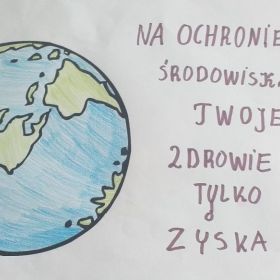 NA OCHRONIE
ŚRODOWISKA
TWOJE
ZDROWIE
TYLKO
ZYSKA